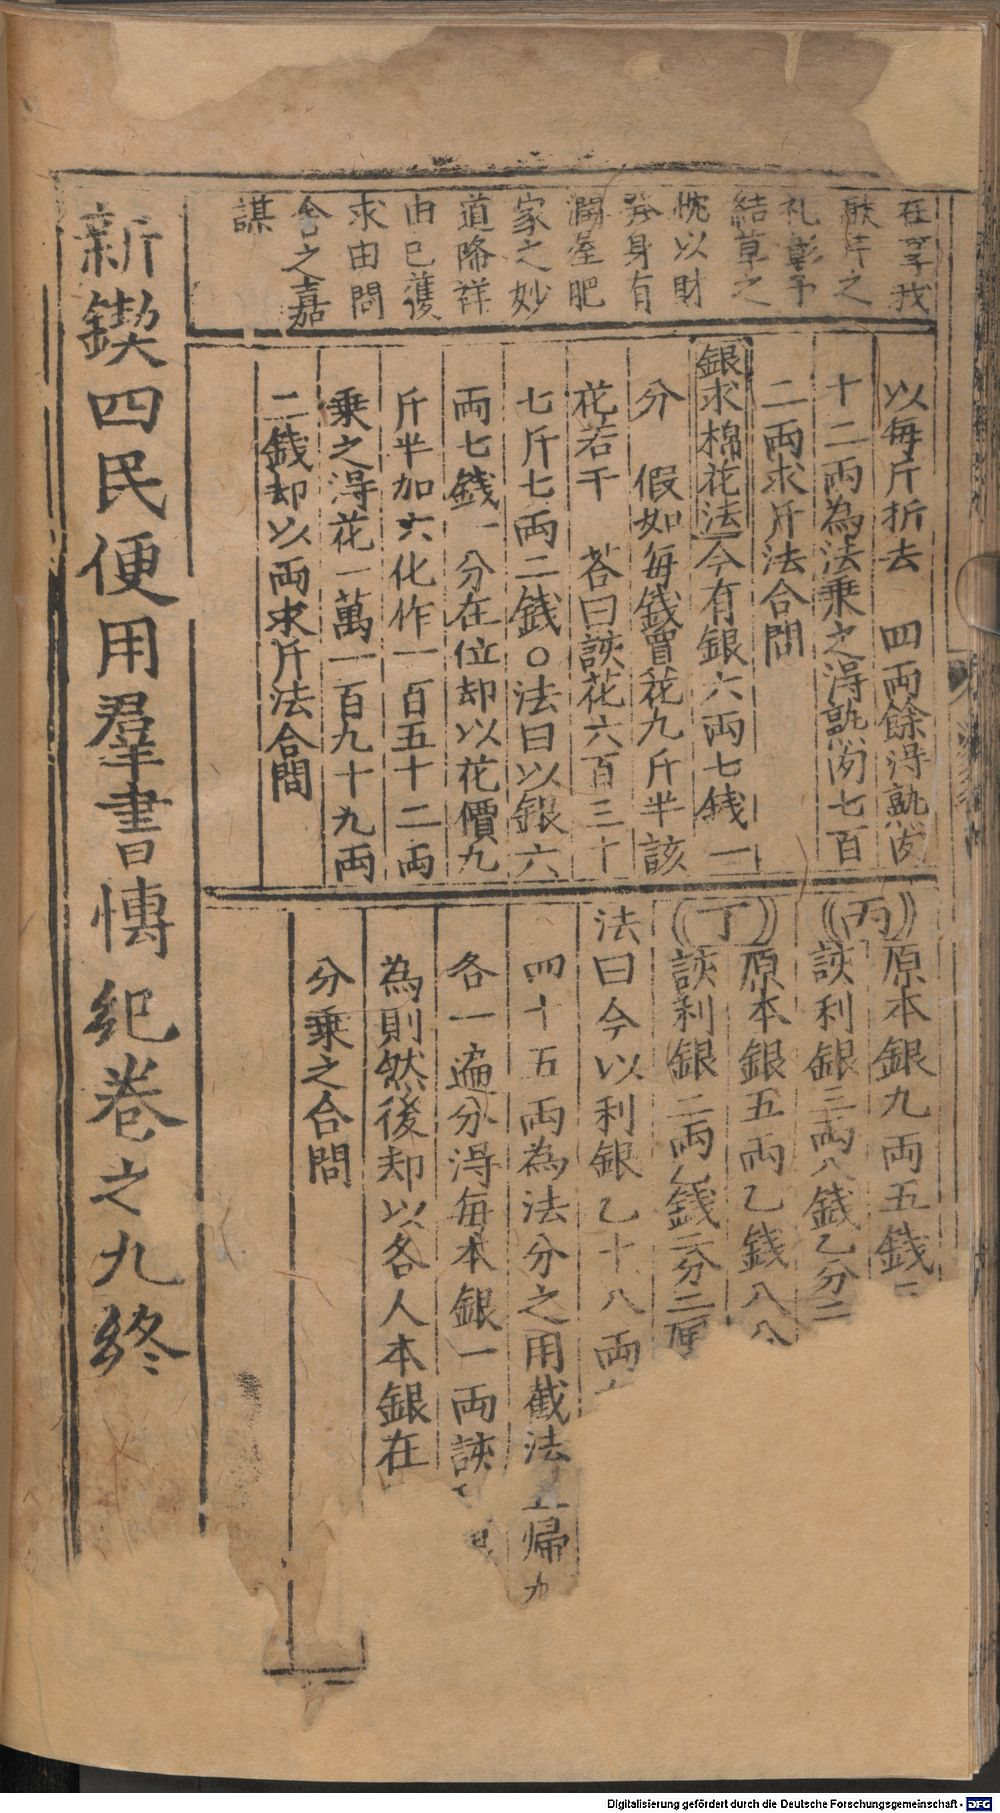 在享我
献芹之
礼彰予
結草之
忱以財
發身有
潤屋肥
家之妙
道降祥
由已獲
求由問
舍之嘉
謀
以每斤折去 四両餘淂熟
十二両為法乗之淂熟 七百
二両求斤法合問
銀求棉花法今有銀六両七銭一
分 假如每銭買花九斤半該
花若干 荅曰該花六百三十
七斤七両二銭○法曰以銀六
両七銭一分在位却以花價九
斤半加六化作一百五十二両
乗之淂花一萬一百九十九両
二銭却以両求斤法合問
丙 原本銀九両五銭
該利銀三両八銭乙分二
丁 原本銀五両乙銭八
該利銀二両 銭二分二厘
法曰今以利銀乙十八両
四十五両為法分之用截法 歸九
各一遍分淂每本銀一両該
為則然後却以各人本銀在
分乗之合問
新鍥四民便用羣書慱紀卷之九終
Digitalisierung gefördert durch die Deutsche Forschungsgemeinschaft - DFG